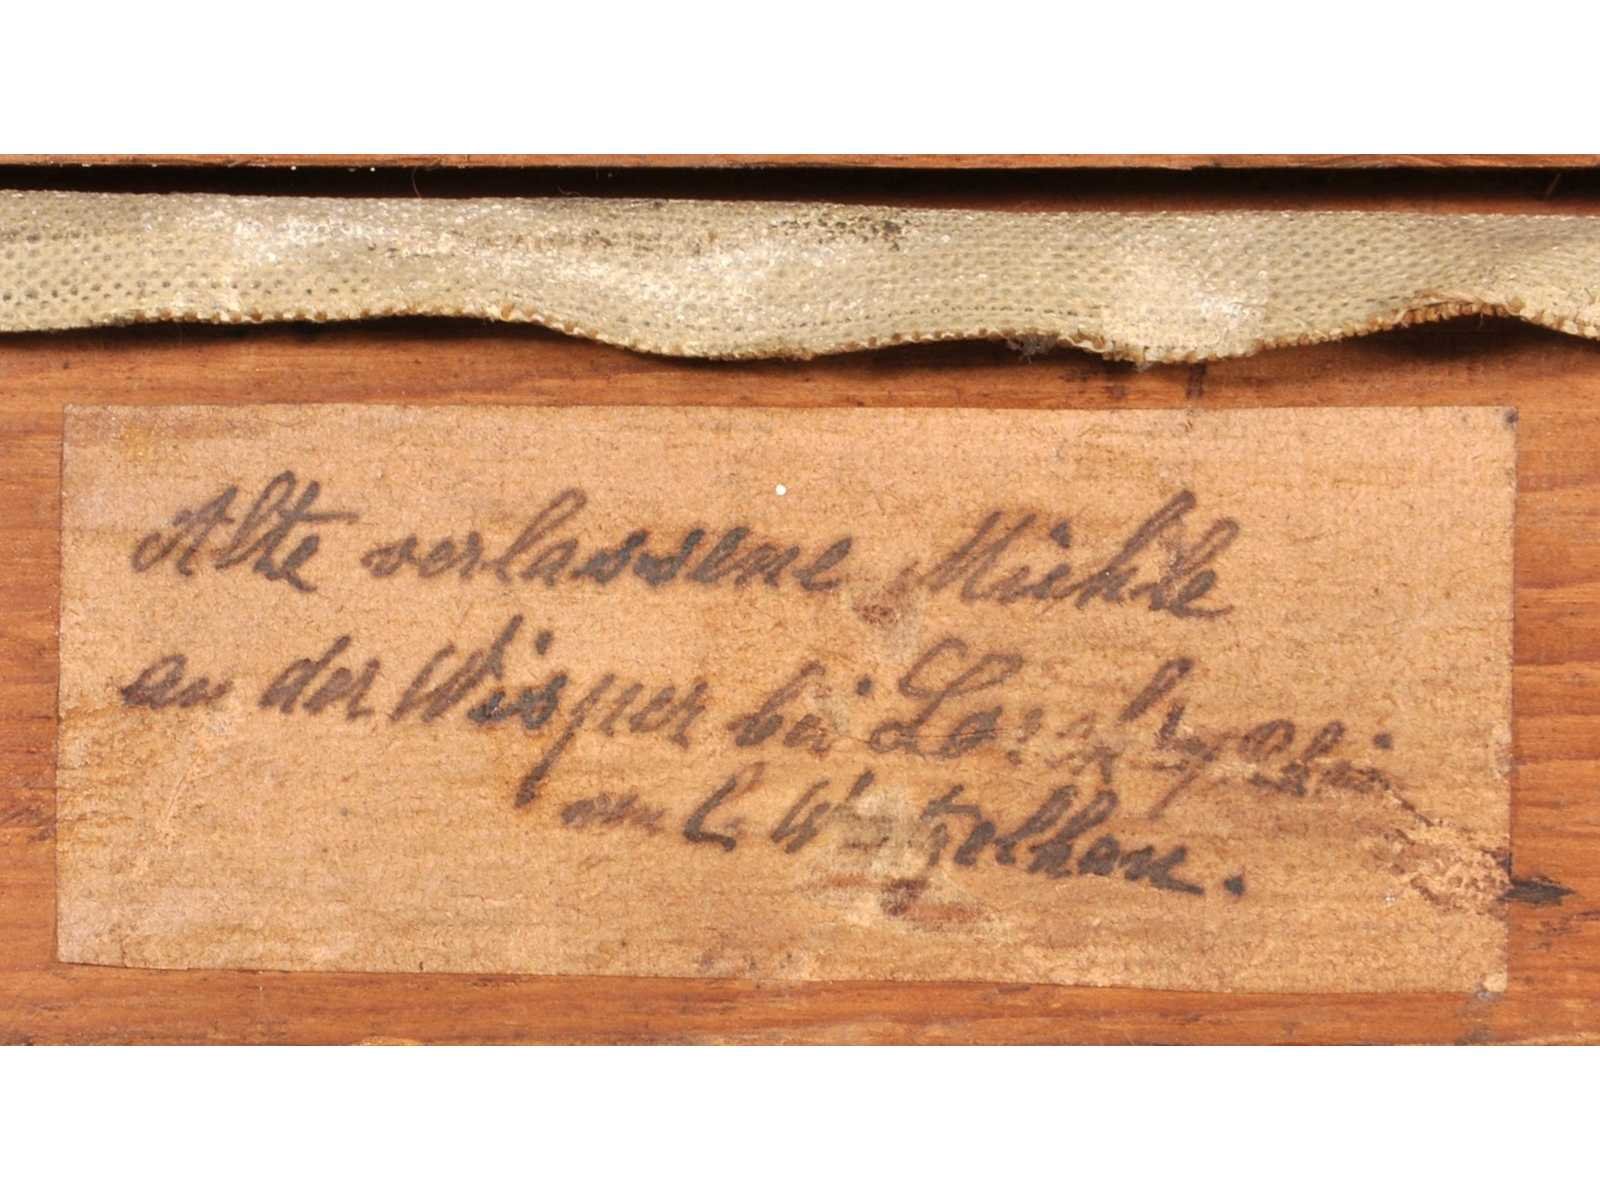 Alte verlassene Mühle
an der Wisper bei Lorch
von C. Wetzelhau.